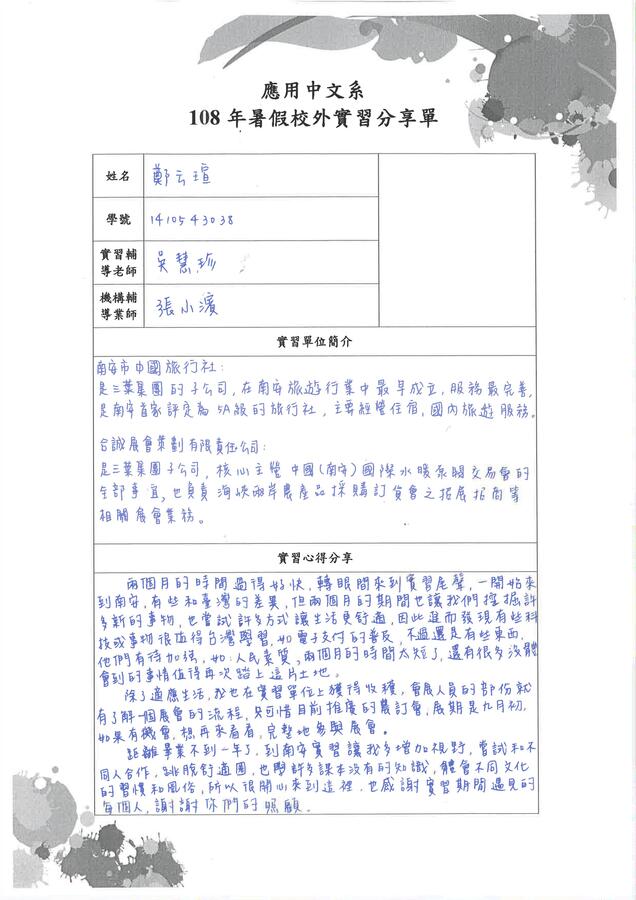 應用中文系
108 年暑假校外實習分享單
姓名 鄭云瑄
學號 1410543038
實習輔導老師 吳慧珍
機構輔導業師 張小濱
實習單位簡介
南安市中國旅行社:
是三葉集團的子公司,在南安旅遊行業中最早成立,服務最完善,
是南安首家評定為5A級的旅行社,主要經營住宿,國內旅遊服務。
台誠展會策劃有限責任公司:
是三葉集團子公司,核心主營中國(南安)國際水暖泵閥交易會的
全部事宜,也負責海峽兩岸農產品採購訂貨會之招展招商等
相關展會業務。
實習心得分享
兩個月的時間過得好快,轉眼間來到實習尾聲,一開始來
到南安,有些和臺灣的差異,但兩個月的期間也讓我們挖掘許
多新的事物,也嘗試許多方式讓生活更舒適,因此進而發現有些科
技或事物很值得台灣學習,如電子支付的普及,不過還是有些東西,
他們有待加強,如:人民素質,兩個月的時間太短了,還有很多沒體
會到的事情值得再次踏上這片土地。
除了適應生活,我也在實習單位上獲得收穫,會展人員的部份就
有了解一個展會的流程,只可惜目前推廣的農訂會,展期是九月初,
如果有機會,想再來看看,完整地參與展會。
距離畢業不到一年了,到南安實習讓我多增加視野,嘗試和不
同人合作,跳脫舒適圈,也學許多課本沒有的知識,體會不同文化
的習慣和風俗,所以很開心來到這裡,也感謝實習期間遇見的
每個人,謝謝你們的照顧。